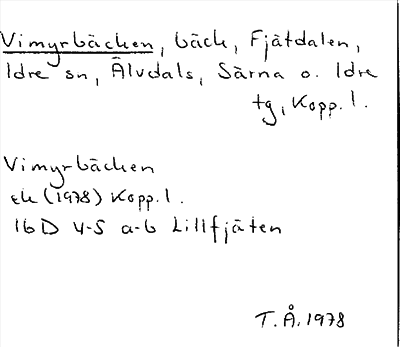 Vimyrbäcken, bäck, Fjätdalen,
Idre sn, Älvdals, Särna o. Idre
tg, Kopp. l.
Vimyrbäcken
ek (1978) Kopp. l.
16D 4-5 a-b Lillfjäten
T.Å. 1978